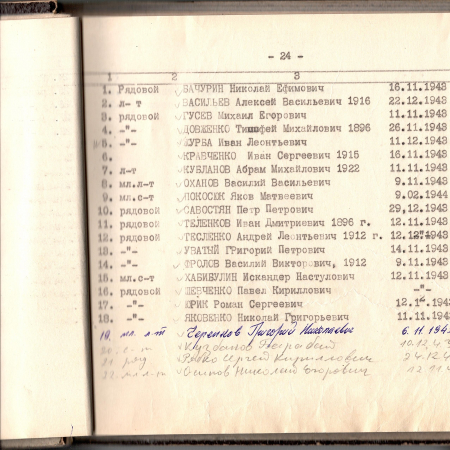 - 24 -
1 2 3
1. Рядовой БАЧУРИН Николай Ефимович 16.11.1943
2. л- т ВАСИЛЬЕВ Алексей Васильевич 1916 22.12.1943
3. рядовой ГУСЕВ Михаил Егорович 11.11.1943
4. -"- ДОВЖЕНКО Тимофей Михайлович 1896 26.11.1943
5. -"- ЖУРБА Иван Леонтьевич 11.12.1943
6. КРАВЧЕНКО Иван Сергеевич 1915 16.11.1943
7. л-т КУБЛАНОВ Абрам Михайлович 1922 11.11.1943
8. мл.л-т ОХАНОВ Василий Васильевич 9.11.1943
9. мл.с-т ПОКОСЮК Яков Матвеевич 9.02.1944
10. рядовой САВОСТЯН Петр Петрович 29.12.1943
11. рядовой ТЕЛЕНКОВ Иван Дмитриевич 1896 г. 12.11.1943
12. рядовой ТЕСЛЕНКО Андрей Леонтьевич 1912 г. 12.12.1943
13. -"- УВАТЫЙ Григорий Петрович 14.11.1943
14. -"- ФРОЛОВ Василий Викторович, 1912 9.11.1943
15. мл.с-т ХАБИБУЛИН Искандер Настулович 12.11.1943
16. рядовой ШЕВЧЕНКО Павел Кириллович -"-
17. -"- ЮРИК Роман Сергеевич 1943
18. -"- ЯКОВЕНКО Николай Григорьевич 11.11.1943
19. мл. л-т Григорий Николаевич 6.11.194
20. л-т
21. ряд Сергей Кириллович 24.12.4
22. мл.л-т Осипов Николай Егорович